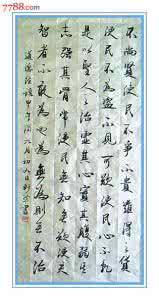 7788.com
不尚賢使民不爭不貴難得之貨
使民不為盜不見可欲使民心不亂
是以聖人之治虛其心實其腹弱其
志強其骨常使民無知無欲使夫
智者不敢為也為無為則無不治
道德經語甲午